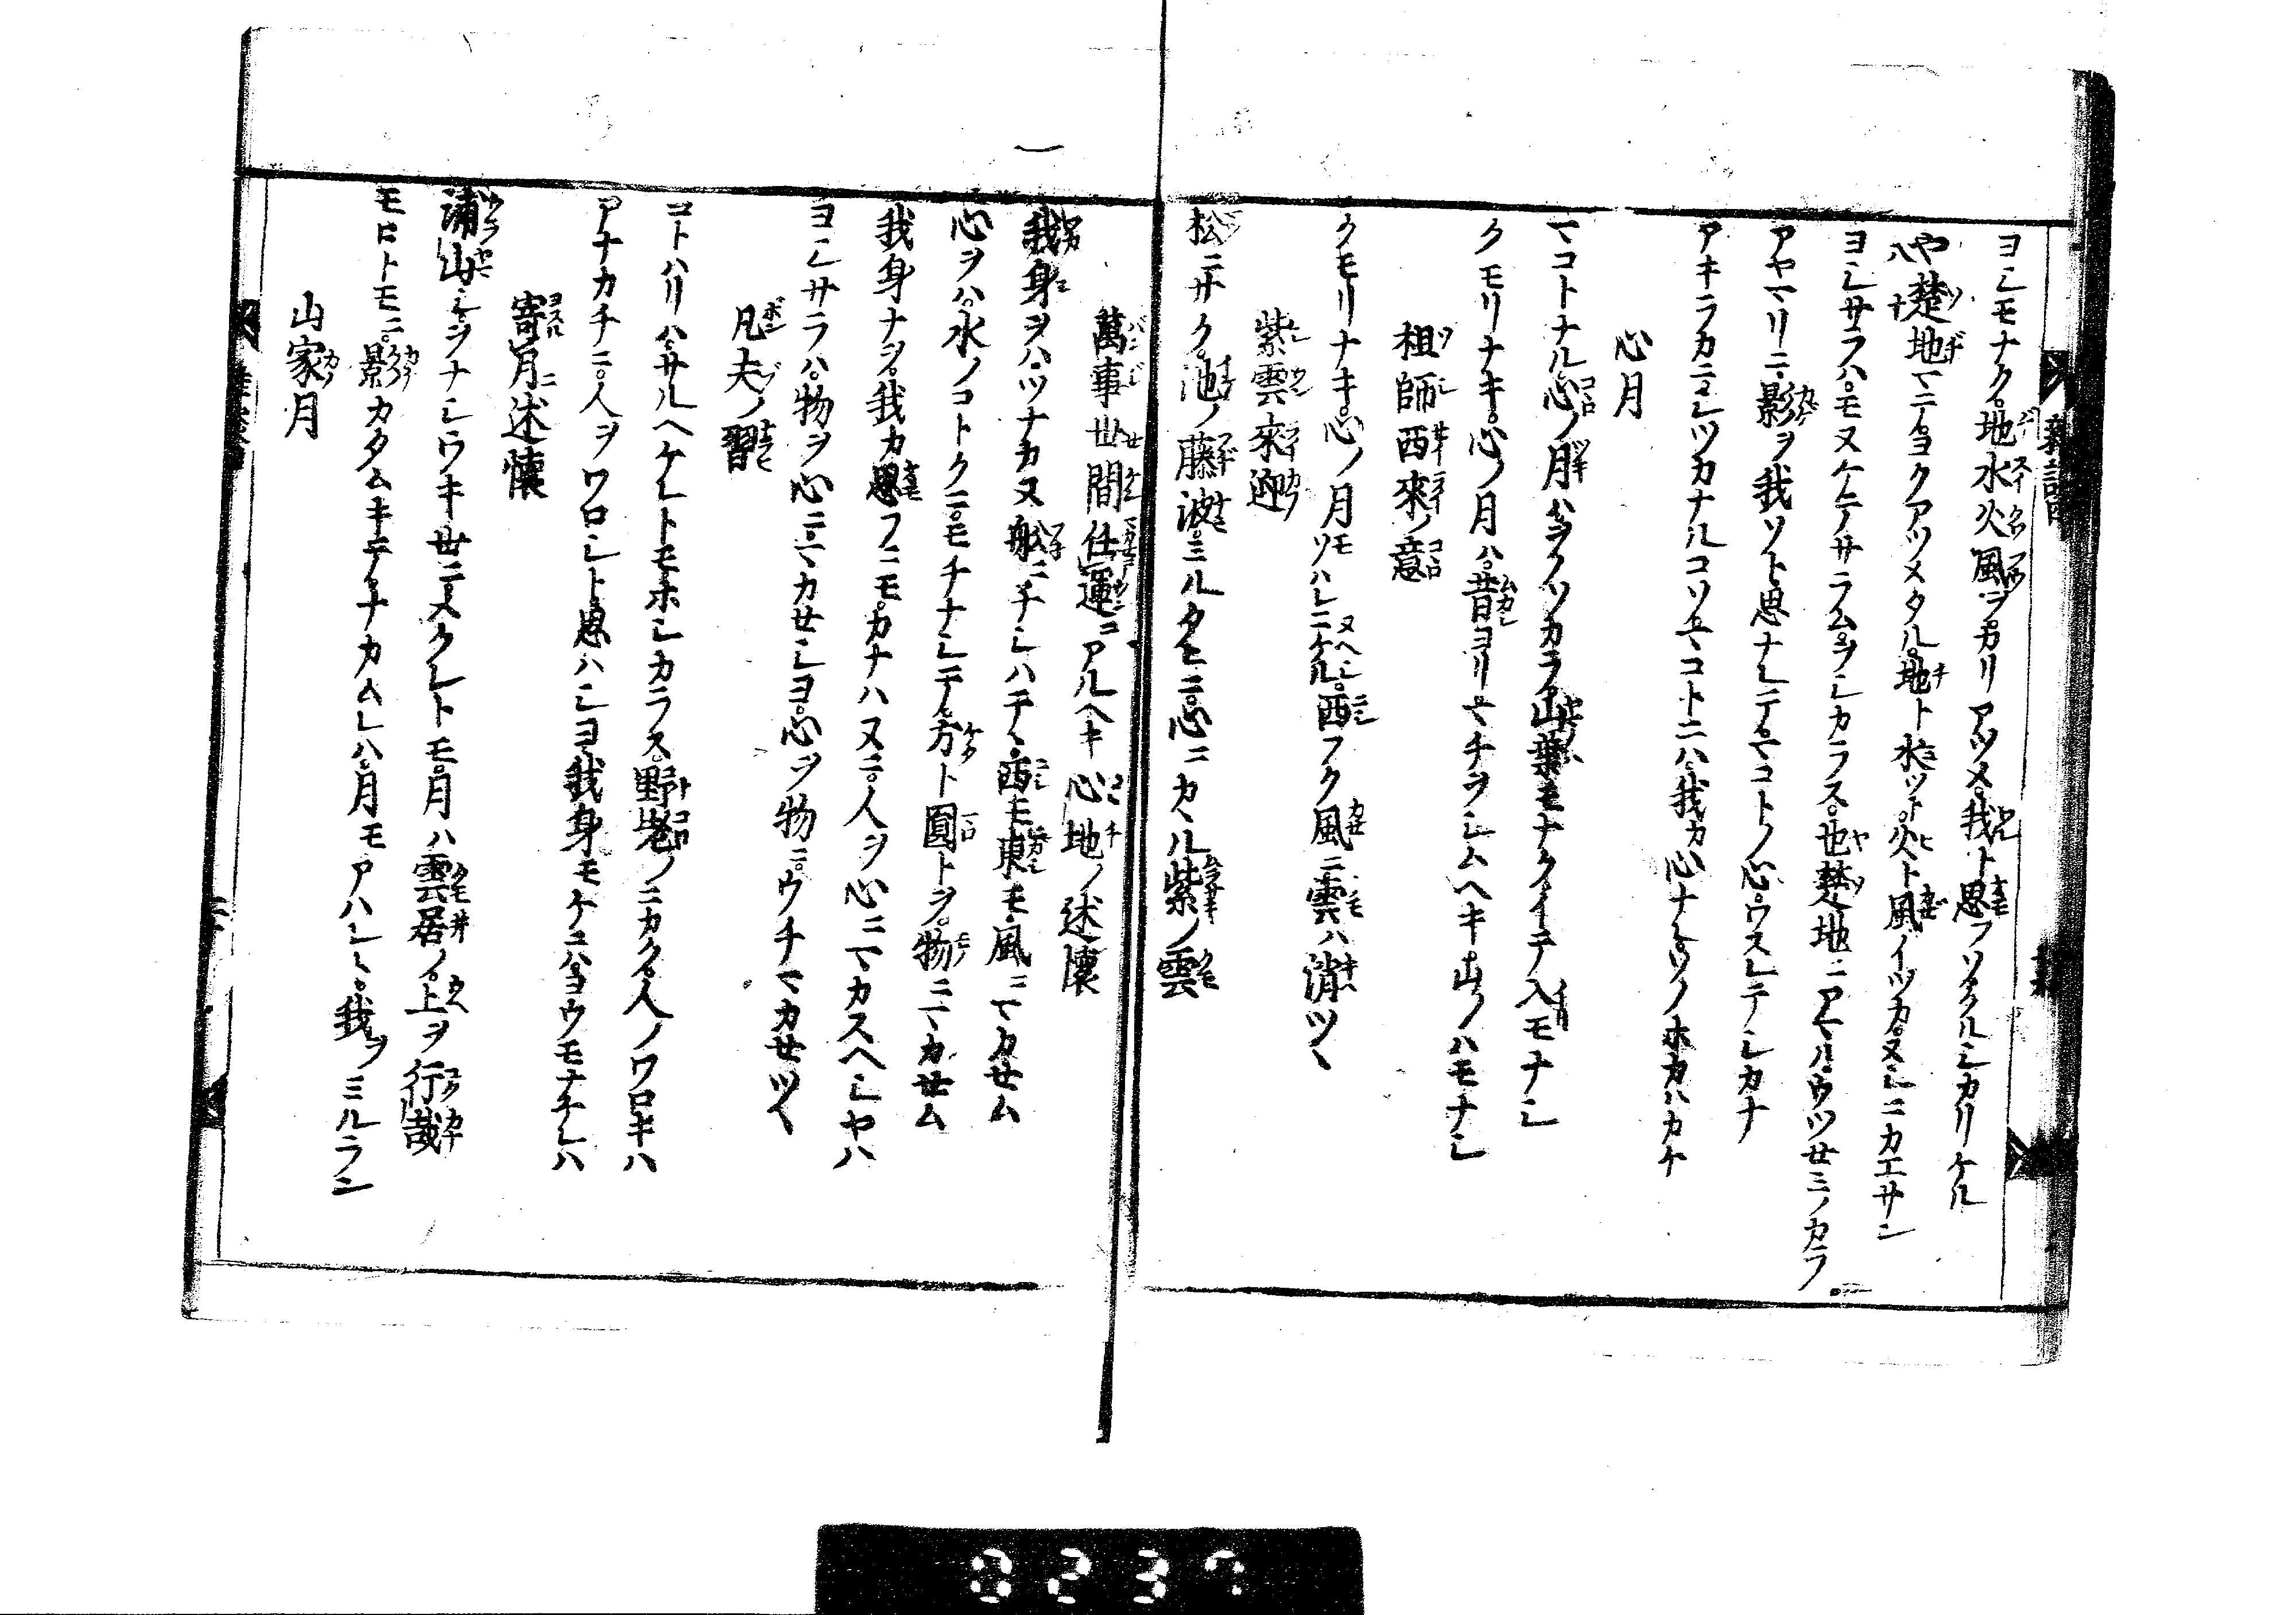 ヨシモナク。地水火風ヲカリアツメ。我ト思フソクルシカリケル
ヨシサラハ。モヌケテサラムヲシカラス。
アヤマリニ。影ヲ我ソト思ナレテ。マコトノ心。ウスレテシカナ
アキラカニシツカナルコソマコトニハ我カ心ナレ
心月
マコトナル心ノ月ハ山ノ葉モナクイテ入モナシ
クモリナキ。心ノ月ハ。昔ヨリマチヲシムヘキ山ノハモナシ
祖師西來ノ意
クモリナキ。心ノ月モソハレニケル。西フク風ニ雲ハ消ツヽ
紫雲來迎
松ニサク。池ノ藤波。ミルタヒニ。心ニカヽル紫ノ雲
萬事世間仕運アルヘキ心地ノ述懷
我身ヲハ。ツナカヌ船ニナシハテヽ。西モ東モ。風ニマカセム
心ヲハ。水ノコトクニ。モチナシテ。方ト圓トヲ。物ニマカセム
我身ナヲ。我カ思フニモ。カナハヌニ。人ヲ心ニマカスヘシヤハ
ヨシサラハ。物ヲ心ニマカセシヨ。心ヲ物ニ。ウチマカセツヽ
凡夫ノ習
コトハリハ。サルヘケレトモホシカラス。野老ノニカク。人ノワロキハ
アナカチニ。人ヲワロシト思ハシヨ。我身モケニハヨウモナケレハ
寄月述懷
浦山シヲナシウキ世ニスクレトモ。月ハ雲居ノ。上ヲ行哉
モロトモニ。影カタムキテナカムレハ。月モアハレヽ。我ヲミルラシ
山家月